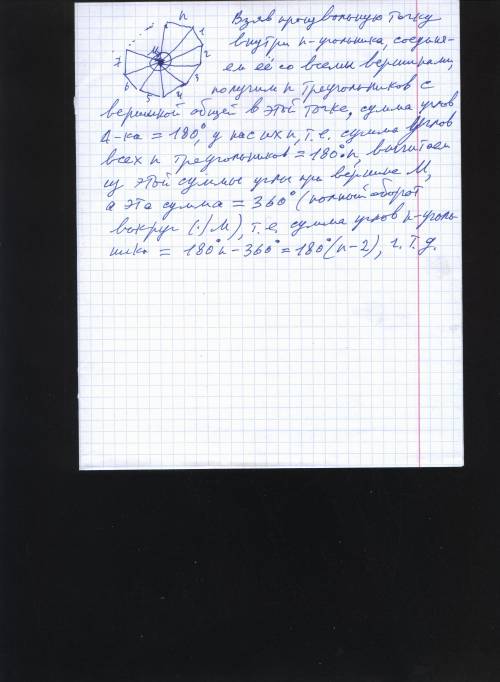 n
1
2
3
4
5
6
7
M
Взяв произвольную точку
внутри n-угольника, соединя-
ем её со всеми вершинами,
получим n треугольников с
вершиной общей в этой точке, сумма углов
Δ-ка = 180°, у нас их n, т.е. сумма углов
всех n треугольников = 180°·n, вычитаем
из этой суммы углы при вершине M,
а эта сумма = 360° (полный оборот
вокруг (·) M), т.е. сумма углов n-уголь-
ника = 180°n - 360° = 180°(n-2), ч.т.д.